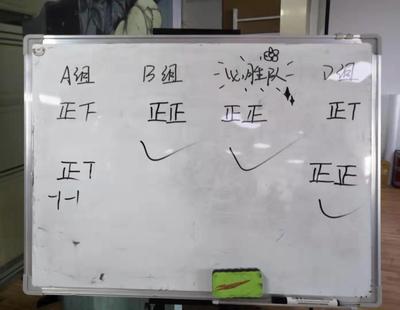 A组 B组 必胜队 D组
正下 正正 正正 正T
正T 正正
-1-1